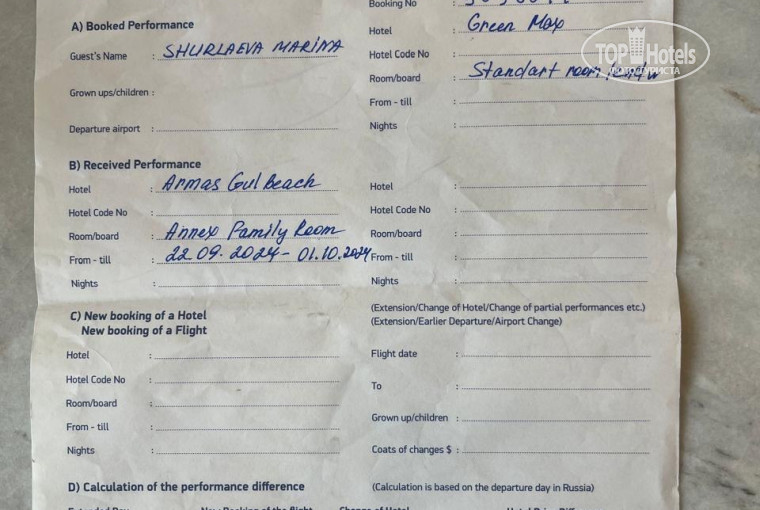 Booking No :
A) Booked Performance
Hotel : Green Max
Guest's Name : SHURLAEVA MARINA
Hotel Code No :
Room/board : Standart room
Grown ups/children :
From - till :
Departure airport :
Nights :
B) Received Performance
Hotel : Armas Gul Beach
Hotel :
Hotel Code No :
Hotel Code No :
Room/board : Annex Family Room
Room/board :
From - till : 22.09.2024 - 01.10.2024
From - till :
Nights :
Nights :
C) New booking of a Hotel
New booking of a Flight
(Extension/Change of Hotel/Change of partial performances etc.)
(Extension/Earlier Departure/Airport Change)
Hotel :
Flight date :
Hotel Code No :
To :
Room/board :
Grown up/children :
From - till :
Nights :
Coats of changes $ :
D) Calculation of the performance difference
(Calculation is based on the departure day in Russia)
TOP Hotels